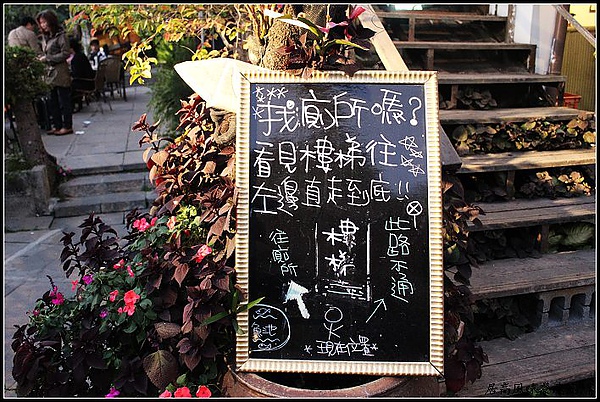 找廁所嗎?
看見樓梯往
左邊直走到底!!
往廁所
樓梯
此路不通
魚池
火
*現在位置*